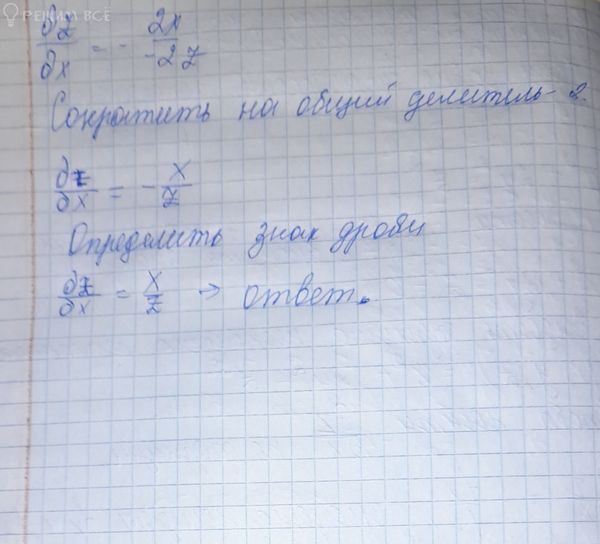 РЕШИМ ВСЁ
∂z/∂x = - 2x/-2z
Сократить на общий делитель - 2.
∂z/∂x = - x/z
Определить знак дроби
∂z/∂x = x/z → ответ.